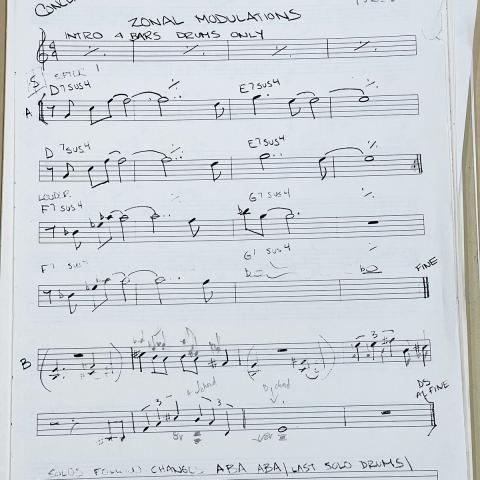 ZONAL MODULATIONS
INTRO 4 BARS DRUMS ONLY
S
D7SUS4 E7SUS4
A
D7SUS4 E7SUS4
LOUDER
F7 SUS4 G7SUS4
F7 SUS4 G7 SUS4
FINE
B
3
DS
AL FINE
3 3
SOLOS FOLLOW CHANGES ABA ABA LAST SOLO DRUMS